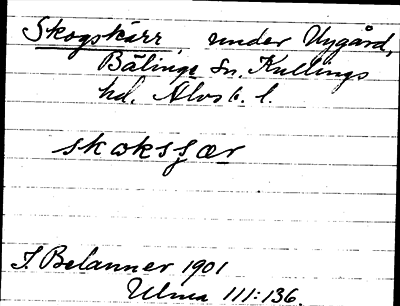 Skogskärr, under Nygård,
Bälinge sn. Kullings
hd. Älvsb. l.
skoksjær
J. Belanner 1901
Ulma 111:136.